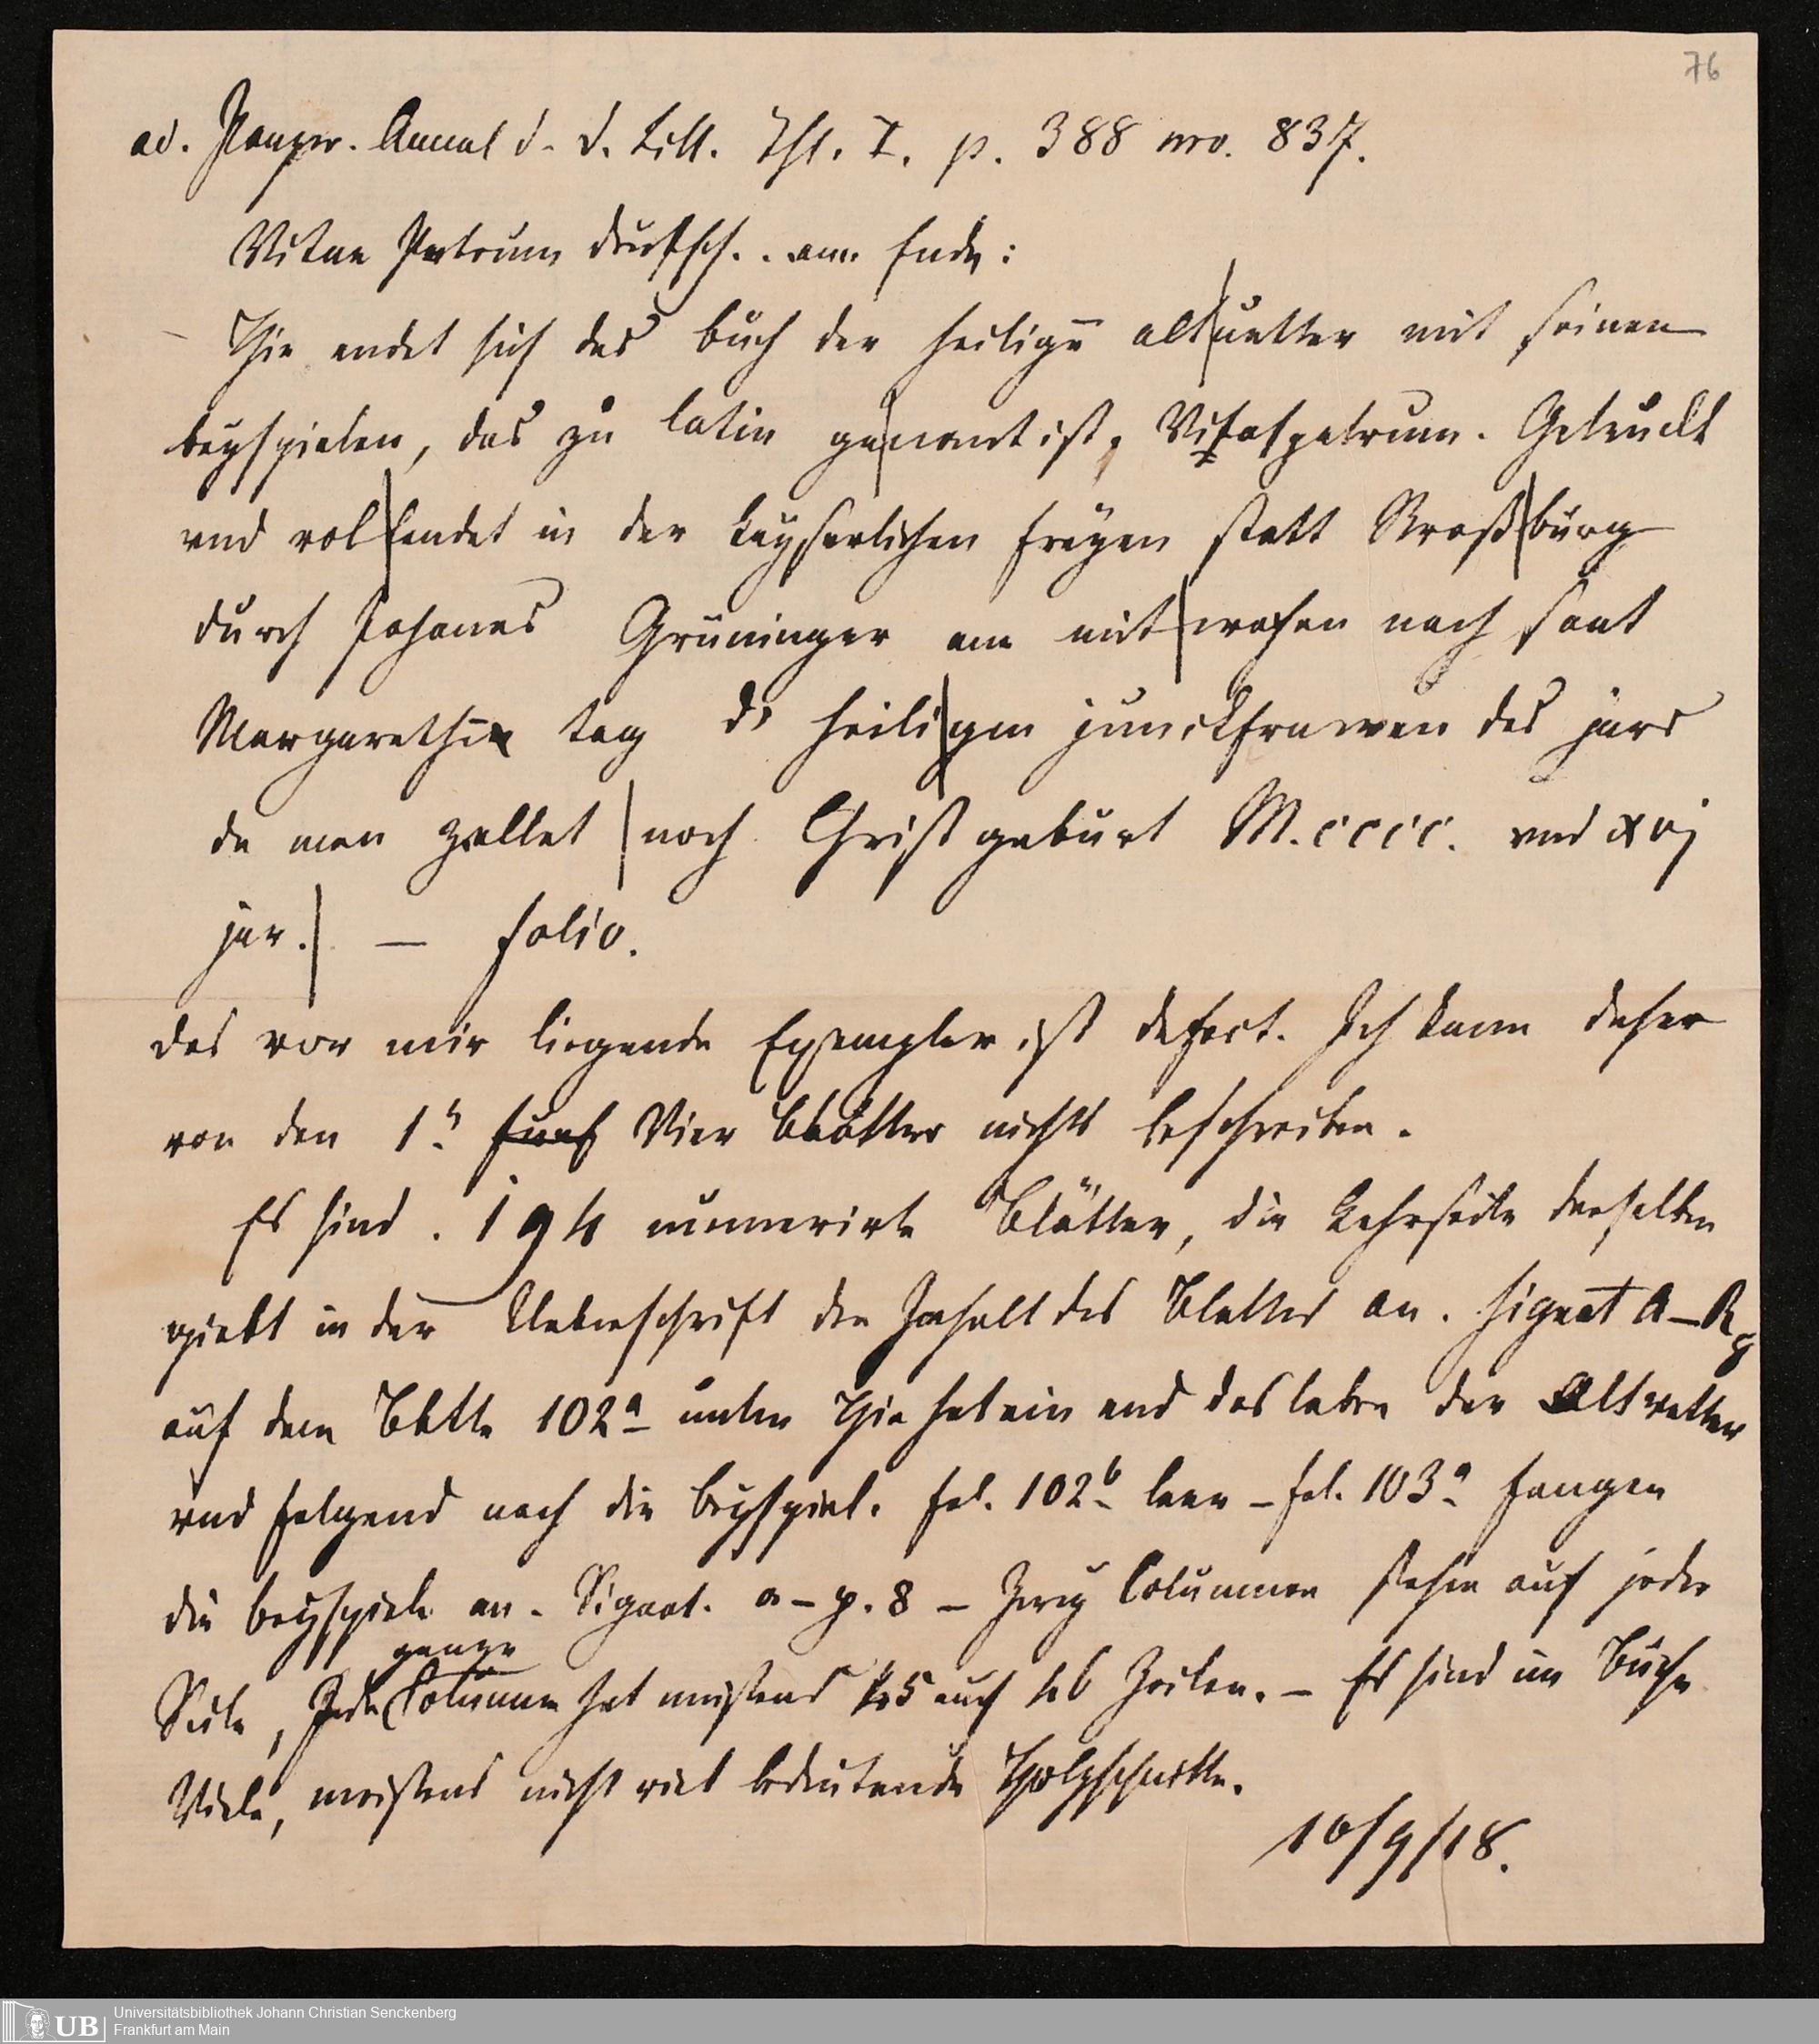 76
ad. Panzer. Annal d. d. Litt. Thl. I. p. 388 nro. 837.
Vitae Patrum deutsch. . am Ende:
Hie endet sich das buch der heiligē alt|uetter mit seinen
beyspielen, das zů latin ge|nant ist, Vitaspatrum. Getruckt
vnd vol|lendet in der keyserlichen freyen statt Straß|burg
durch Johanes Grüninger am mit|wochen nach sant
Margarethē tag d' heili|gen junckfrawen des jars
da man zallet | noch Christ geburt M.cccc. vnd xvj
jar.| — Folio.
Das vor mir liegende Exemplar ist defect. Ich kann daher
von den 1n fünf Vier Blätter nichts beschreiben.
Es sind . 194 numerirte Blätter, die Kehrseite derselben
giebt in der Ueberschrift den Inhalt des Blattes an. Signat A–R
auf dem Blatte 102a unten Hie hat ein end das leben der Altvetter
vnd folgend noch die beyspiel. fol. 102b leer – fol. 103a fangen
die beyspiele an. Signat. a – p. 8 – Zwey Columnen stehen auf jeder
ganze
Seite, Jede Columne hat meistens 45 auch 46 Zeilen. – Es sind im Buche
Viele, meistens nicht viel bedeutende Holzschnitte.
10/9/18.
UB
Universitätsbibliothek Johann Christian Senckenberg
Frankfurt am Main